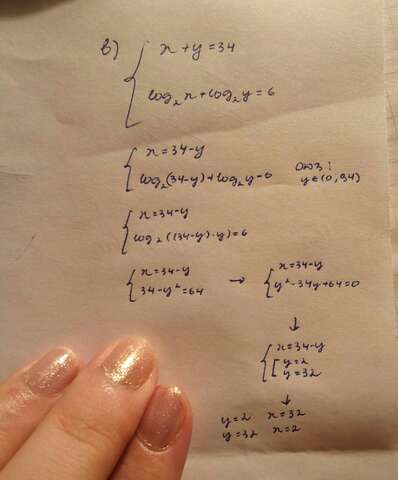 в) { x + y = 34
log₂x + log₂y = 6
{ x = 34 - y
log₂(34-y) + log₂y = 6 ОДЗ: y ∈ (0; 34)
{ x = 34 - y
log₂((34-y)·y) = 6
{ x = 34 - y → { x = 34 - y
34 - y² = 64 y² - 34y + 64 = 0
↓
{ x = 34 - y
[ y = 2
y = 32
↓
y = 2 x = 32
y = 32 x = 2